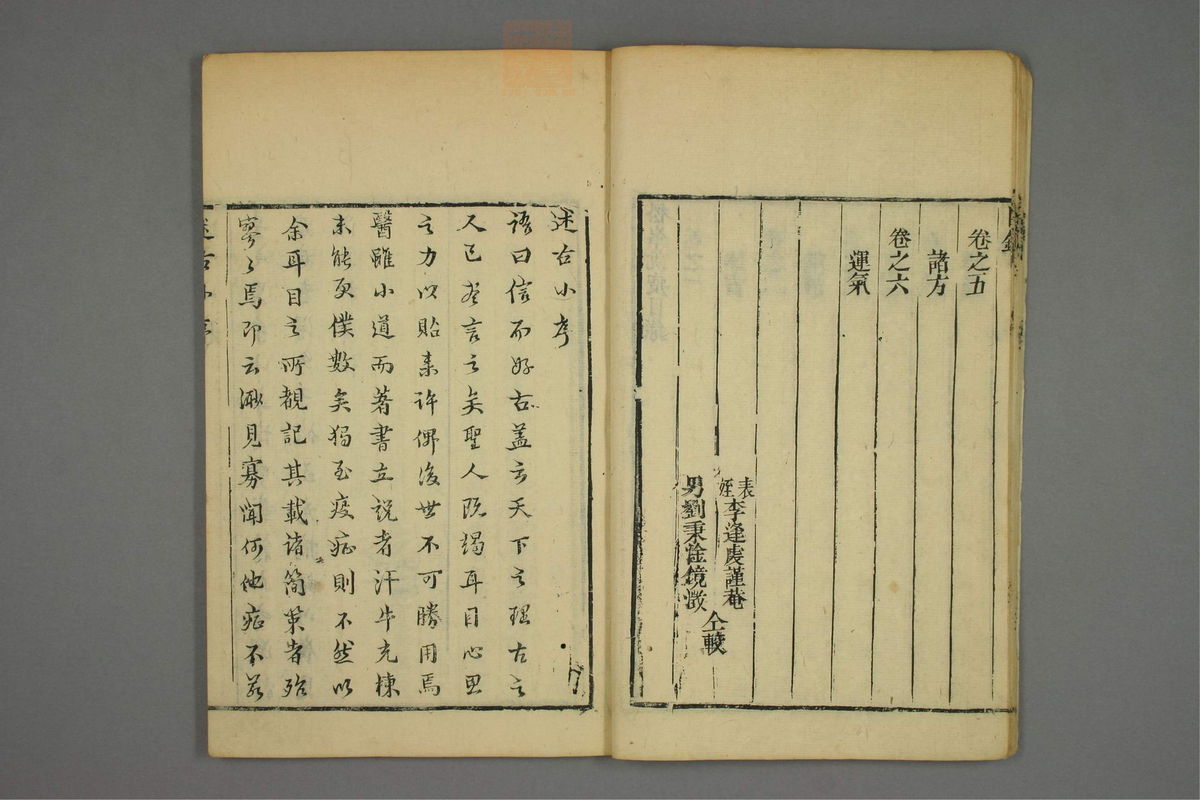 錄
卷之五
諸方
卷之六
運氣
表姪李逢處謹菴
男劉秉淦鏡微
仝較
述古小序
語曰信而好古蓋言天下之理古之
人已先言之矣聖人既竭耳目心思
之力以貽來許俾後世不可勝用焉
醫雖小道而著書立說者汗牛充棟
未能更僕數矣獨至疫症則不然以
余耳目之所覩記其載諸簡策者殆
寥寥焉卽云漱見寡聞何他症不若